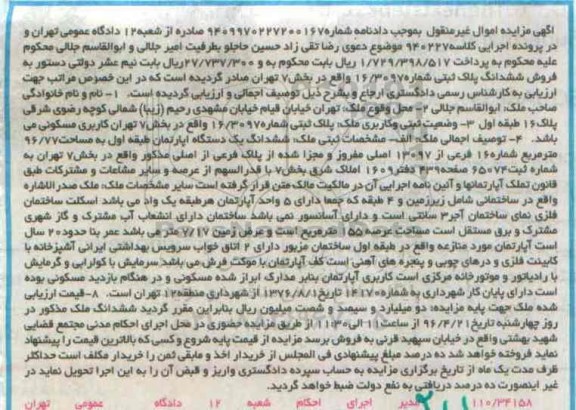 آگهی مزایده اموال غیرمنقول بموجب دادنامه شماره۹۴۰۹۹۷۰۲۲۷۲۰۰۱۶۷ صادره از شعبه۱۲ دادگاه عمومی تهران و
در پرونده اجرایی کلاسه۹۴۰۲۲۷ موضوع دعوی رضا تقی زاد حسین حاجلو بطرفیت امیر جلالی و ابوالقاسم جلالی محکوم
علیه محکوم به پرداخت ۱/۷۲۹/۳۹۸/۵۱۷ریال بابت محکوم به و ۲۷/۷۳۷/۳۰۰ریال بابت نیم عشر دولتی دستور به
فروش ششدانگ پلاک ثبتی شماره۱۶/۳۰۹۷ واقع در بخش۷ تهران صادر گردیده است که در این خصوص مراتب جهت
ارزیابی به کارشناس رسمی دادگستری ارجاع و بشرح ذیل توصیف اجمالی و ارزیابی گردیده است. ۱- نام و نام خانوادگی
صاحب ملک: ابوالقاسم جلالی ۲- محل وقوع ملک: تهران خیابان قیام خیابان مشهدی رحیم (زیبا) شمالی کوچه رضوی شرقی
پلاک۱۶ طبقه اول ۳- وضعیت ثبتی وکاربری ملک: پلاک ثبتی شماره۱۶/۳۰۹۷ واقع در بخش۷ تهران کاربری مسکونی می
باشد. ۴- توصیف اجمالی ملک: الف- مشخصات ثبتی ملک: ششدانگ یک دستگاه آپارتمان طبقه اول به مساحت۹۶/۷۷
مترمربع شماره۱۶ فرعی از ۱۳۰۹۷ اصلی مفروز و مجزا شده از پلاک فرعی از اصلی مذکور واقع در بخش۷ تهران به
شماره ثبت۶۵۰۷۴ صفحه۴۳۹ دفتر۱۶۰۹ املاک شرق بخش۷ با قدرالسهم از عرصه و سایر مشاعات و مشترکات طبق
قانون تملک آپارتمانها و آئین نامه اجرایی آن در مالکیت مالک متن قرار گرفته است سایر مشخصات ملک: ملک صدرالاشاره
واقع در ساختمانی شامل زیرزمین و ۴ طبقه که جمعا دارای ۵ واحد آپارتمان هرطبقه یک واد می باشد اسکلت ساختمان
فلزی نمای ساختمان آجر۳ سانتی است و دارای آسانسور نمی باشد ساختمان دارای انشعاب آب مشترک و گاز شهری
مشترک و برق مستقل است مساحت عرصه ۱۵۵ مترمربع است و عرض زمین ۷/۱۷ متر می باشد عمر بنا حدود۲۰ سال
است آپارتمان مورد منازعه واقع در طبقه اول ساختمان مزبور دارای ۲ اتاق خواب سرویس بهداشتی ایرانی آشپزخانه با
کابینت فلزی و درهای چوبی و پنجره های آهنی است کف آپارتمان با موکت فرش می باشد سرمایش با کولرآبی و گرمایش
با رادیاتور و موتورخانه مرکزی است کاربری آپارتمان بنابر مدارک ابراز شده مسکونی و در هنگام بازدید مسکونی بوده
است دارای پایان کار شهرداری به شماره۱۴۱۷۰ تاریخ۱۳۷۶/۸/۱ از شهرداری منطقه۱۲ تهران است. ۸-قیمت ارزیابی
شده ملک جهت پایه مزایده: دو میلیارد و سیصد و شصت میلیون ریال بنابراین مقرر گردید ششدانگ ملک مذکور در
روز چهارشنبه تاریخ۹۶/۴/۲۱ از ساعت۱۱ الی۱۱:۳۰ از طریق مزایده حضوری در محل اجرای احکام مدنی مجتمع قضایی
شهید بهشتی واقع در خیابان سپهبد قرنی به فروش برسد مزایده از قیمت پایه شروع و کسی که بالاترین قیمت را پیشنهاد
نماید فروخته خواهد شد ده درصد مبلغ پیشنهادی فی المجلس از خریدار اخذ و مابقی ثمن را خریدار مکلف است حداکثر
ظرف مدت یک ماه از تاریخ برگزاری مزایده به حساب سپرده دادگستری واریز و قبض آن را به این اجرا تحویل نماید در
غیر اینصورت ده درصد دریافتی به نفع دولت ضبط خواهد گردید.
۱۱۰/۳۴۱۵۸ مدیر اجرای احکام شعبه ۱۲ دادگاه عمومی تهران